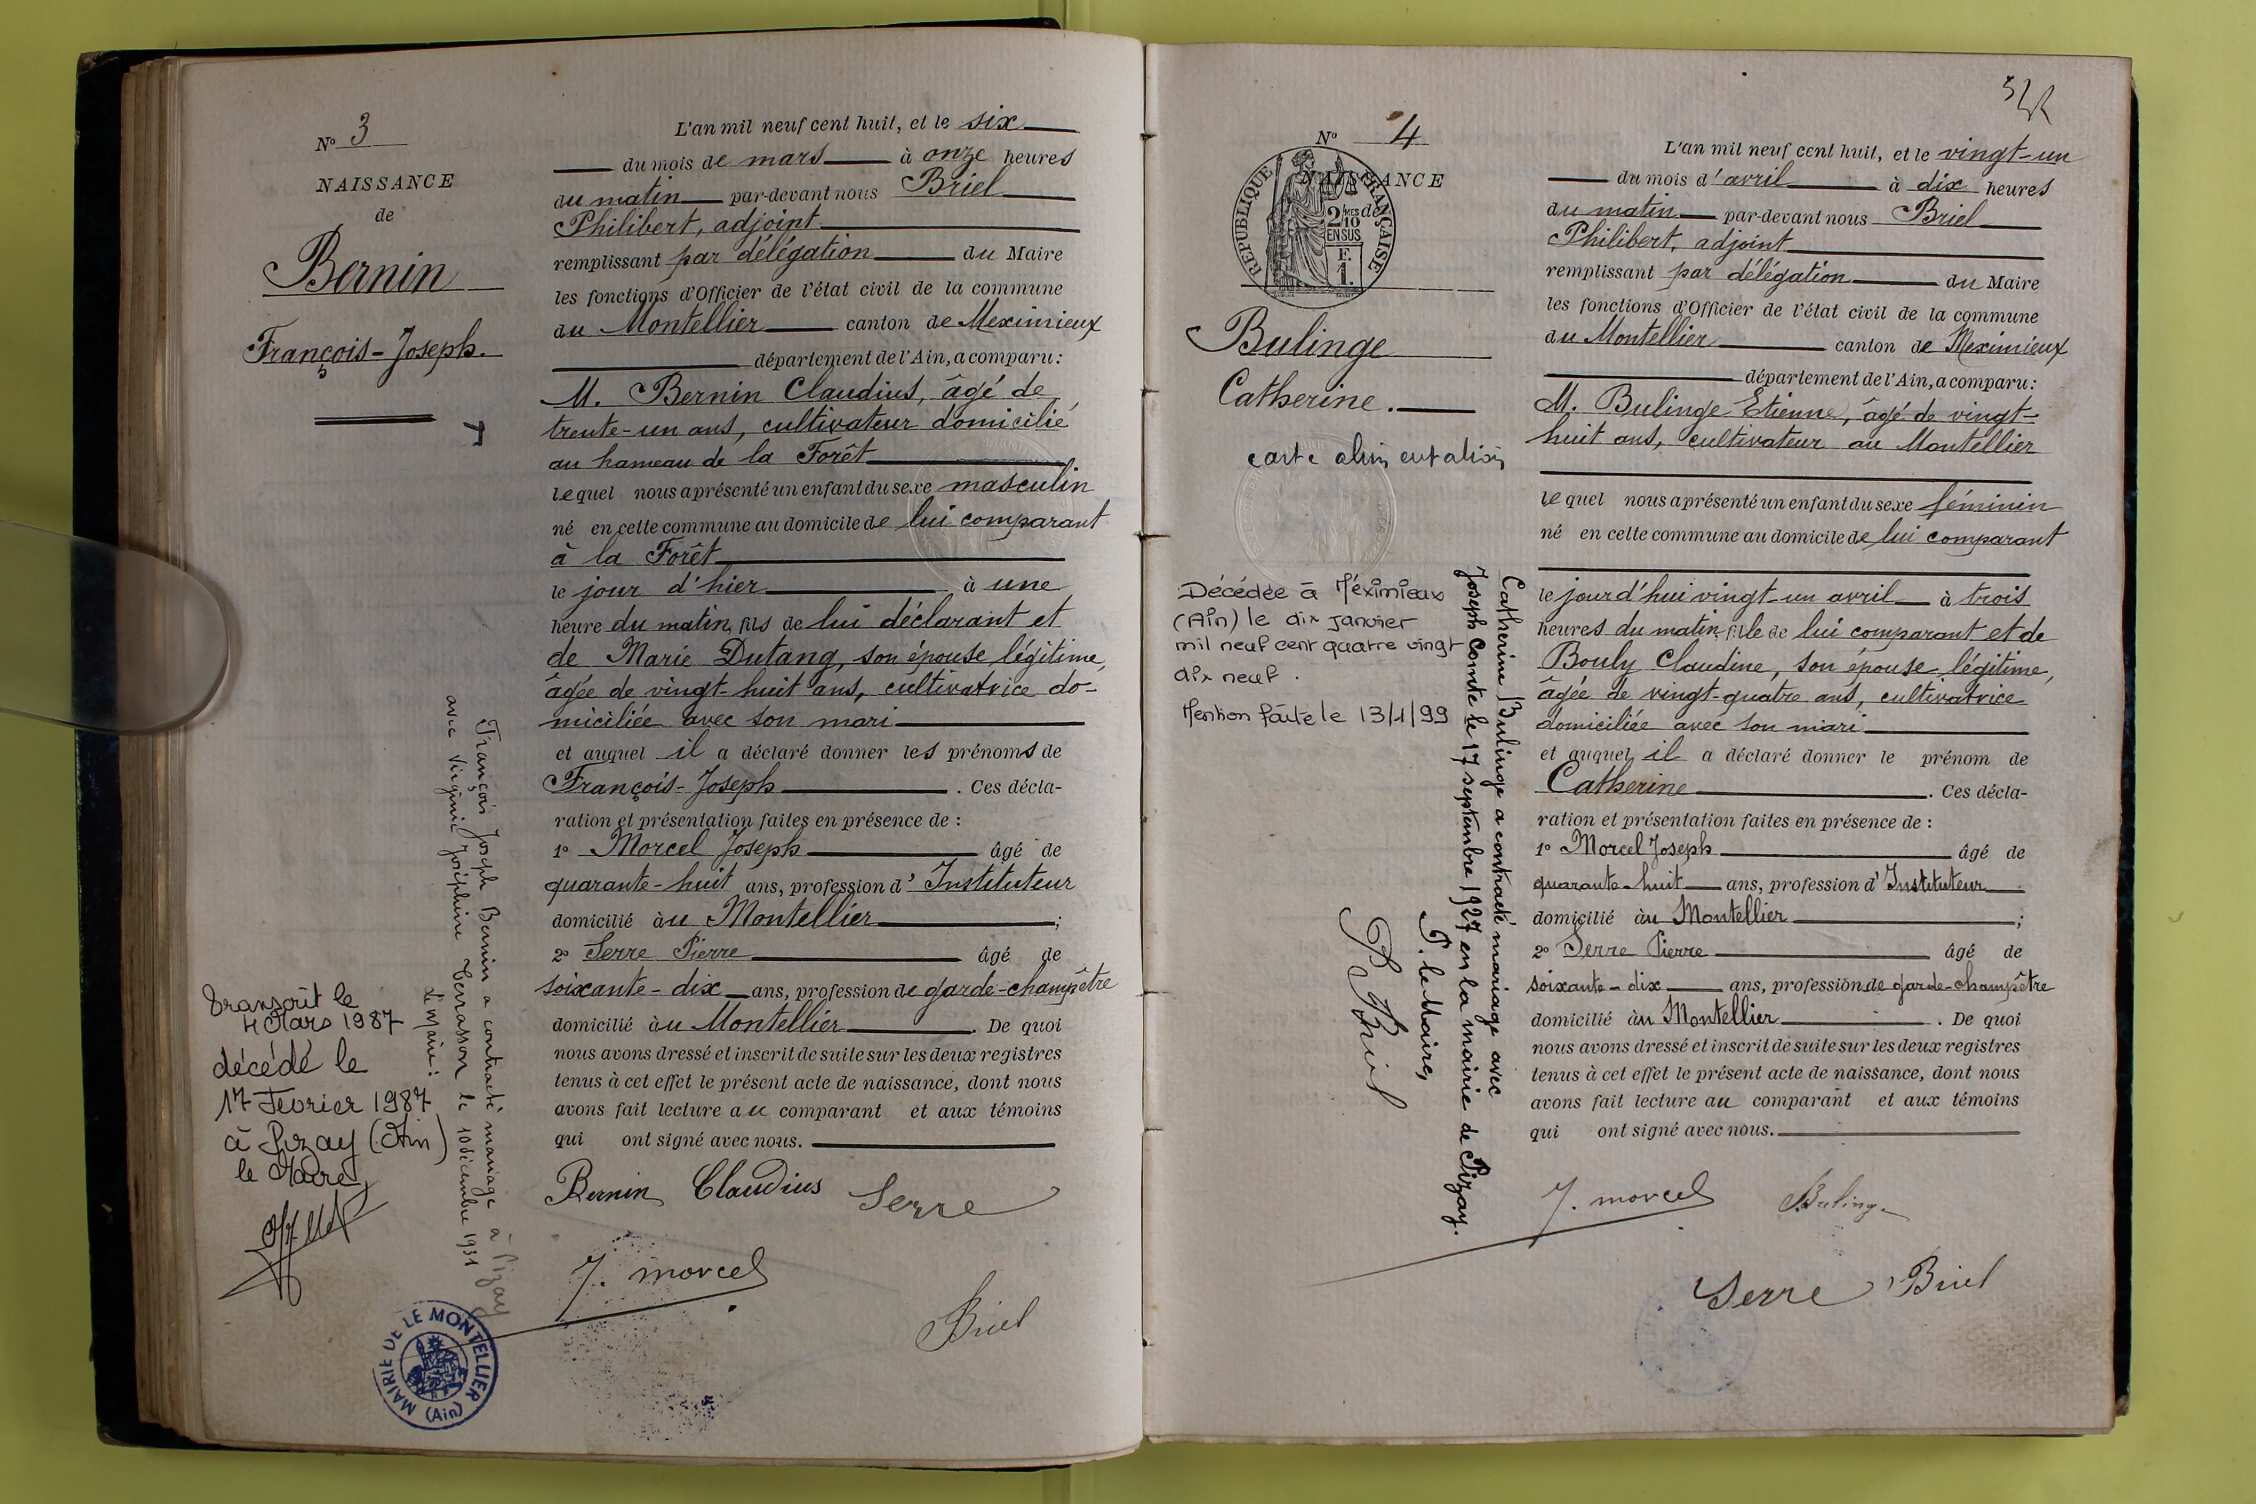 N° 3
NAISSANCE
de
Bernin
François-Joseph.
L'an mil neuf cent huit, et le six
du mois de mars à onze heures
du matin par-devant nous Briel
Philibert, adjoint
remplissant par délégation du Maire
les fonctions d'Officier de l'état civil de la commune
du Montellier canton de Meximieux
département de l'Ain, a comparu:
M. Bernin Claudius, âgé de
trente-un ans, cultivateur domicilié
au hameau de la Forêt
lequel nous a présenté un enfant du sexe masculin
né en cette commune au domicile de lui comparant
à la Forêt
le jour d'hier à une
heure du matin, fils de lui déclarant et
de Marie Dutang, son épouse légitime,
âgée de vingt-huit ans, cultivatrice do-
miciliée avec son mari
et auquel il a déclaré donner les prénoms de
François-Joseph. Ces décla-
ration et présentation faites en présence de :
1° Morcel Joseph âgé de
quarante-huit ans, profession d'Instituteur
domicilié au Montellier ;
2° Serre Pierre âgé de
soixante-dix ans, profession de garde-champêtre
domicilié au Montellier. De quoi
nous avons dressé et inscrit de suite sur les deux registres
tenus à cet effet le présent acte de naissance, dont nous
avons fait lecture au comparant et aux témoins
qui ont signé avec nous.
Bernin Claudius Serre
J. morcel
Briel
François Joseph Bernin a contracté mariage à Pizay
avec Virginie Joséphine Terrasson le 10 décembre 1931
Le maire:
Transcrit le
4 Mars 1987
décédé le
17 Février 1987
à Pizay (Ain)
le Maire,
MAIRIE DE LE MONTELLIER
(Ain)
N° 4
NAISSANCE
de
REPUBLIQUE FRANÇAISE
2/10 MES
EN SUS
F.
1.
Bulinge
Catherine.
carte alimentation
Décédée à Méximieux
(Ain) le dix janvier
mil neuf cent quatre vingt
dix neuf.
Mention faite le 13/1/99
Catherine Bulinge a contracté mariage avec
Joseph Comte le 17 septembre 1927 en la mairie de Pizay.
P. le Maire,
B Briel
L'an mil neuf cent huit, et le vingt-un
du mois d'avril à dix heures
du matin par-devant nous Briel
Philibert, adjoint
remplissant par délégation du Maire
les fonctions d'Officier de l'état civil de la commune
du Montellier canton de Meximieux
département de l'Ain, a comparu:
M. Bulinge Etienne, âgé de vingt-
huit ans, cultivateur au Montellier
lequel nous a présenté un enfant du sexe féminin
né en cette commune au domicile de lui comparant
le jourd'hui vingt-un avril à trois
heures du matin, fille de lui comparant et de
Bouly Claudine, son épouse légitime,
âgée de vingt-quatre ans, cultivatrice
domiciliée avec son mari
et auquel il a déclaré donner le prénom de
Catherine. Ces décla-
ration et présentation faites en présence de :
1° Morcel Joseph âgé de
quarante-huit ans, profession d'Instituteur
domicilié au Montellier ;
2° Serre Pierre âgé de
soixante-dix ans, profession de garde-champêtre
domicilié au Montellier. De quoi
nous avons dressé et inscrit de suite sur les deux registres
tenus à cet effet le présent acte de naissance, dont nous
avons fait lecture au comparant et aux témoins
qui ont signé avec nous.
J. morcel Bulinge
Serre Briel